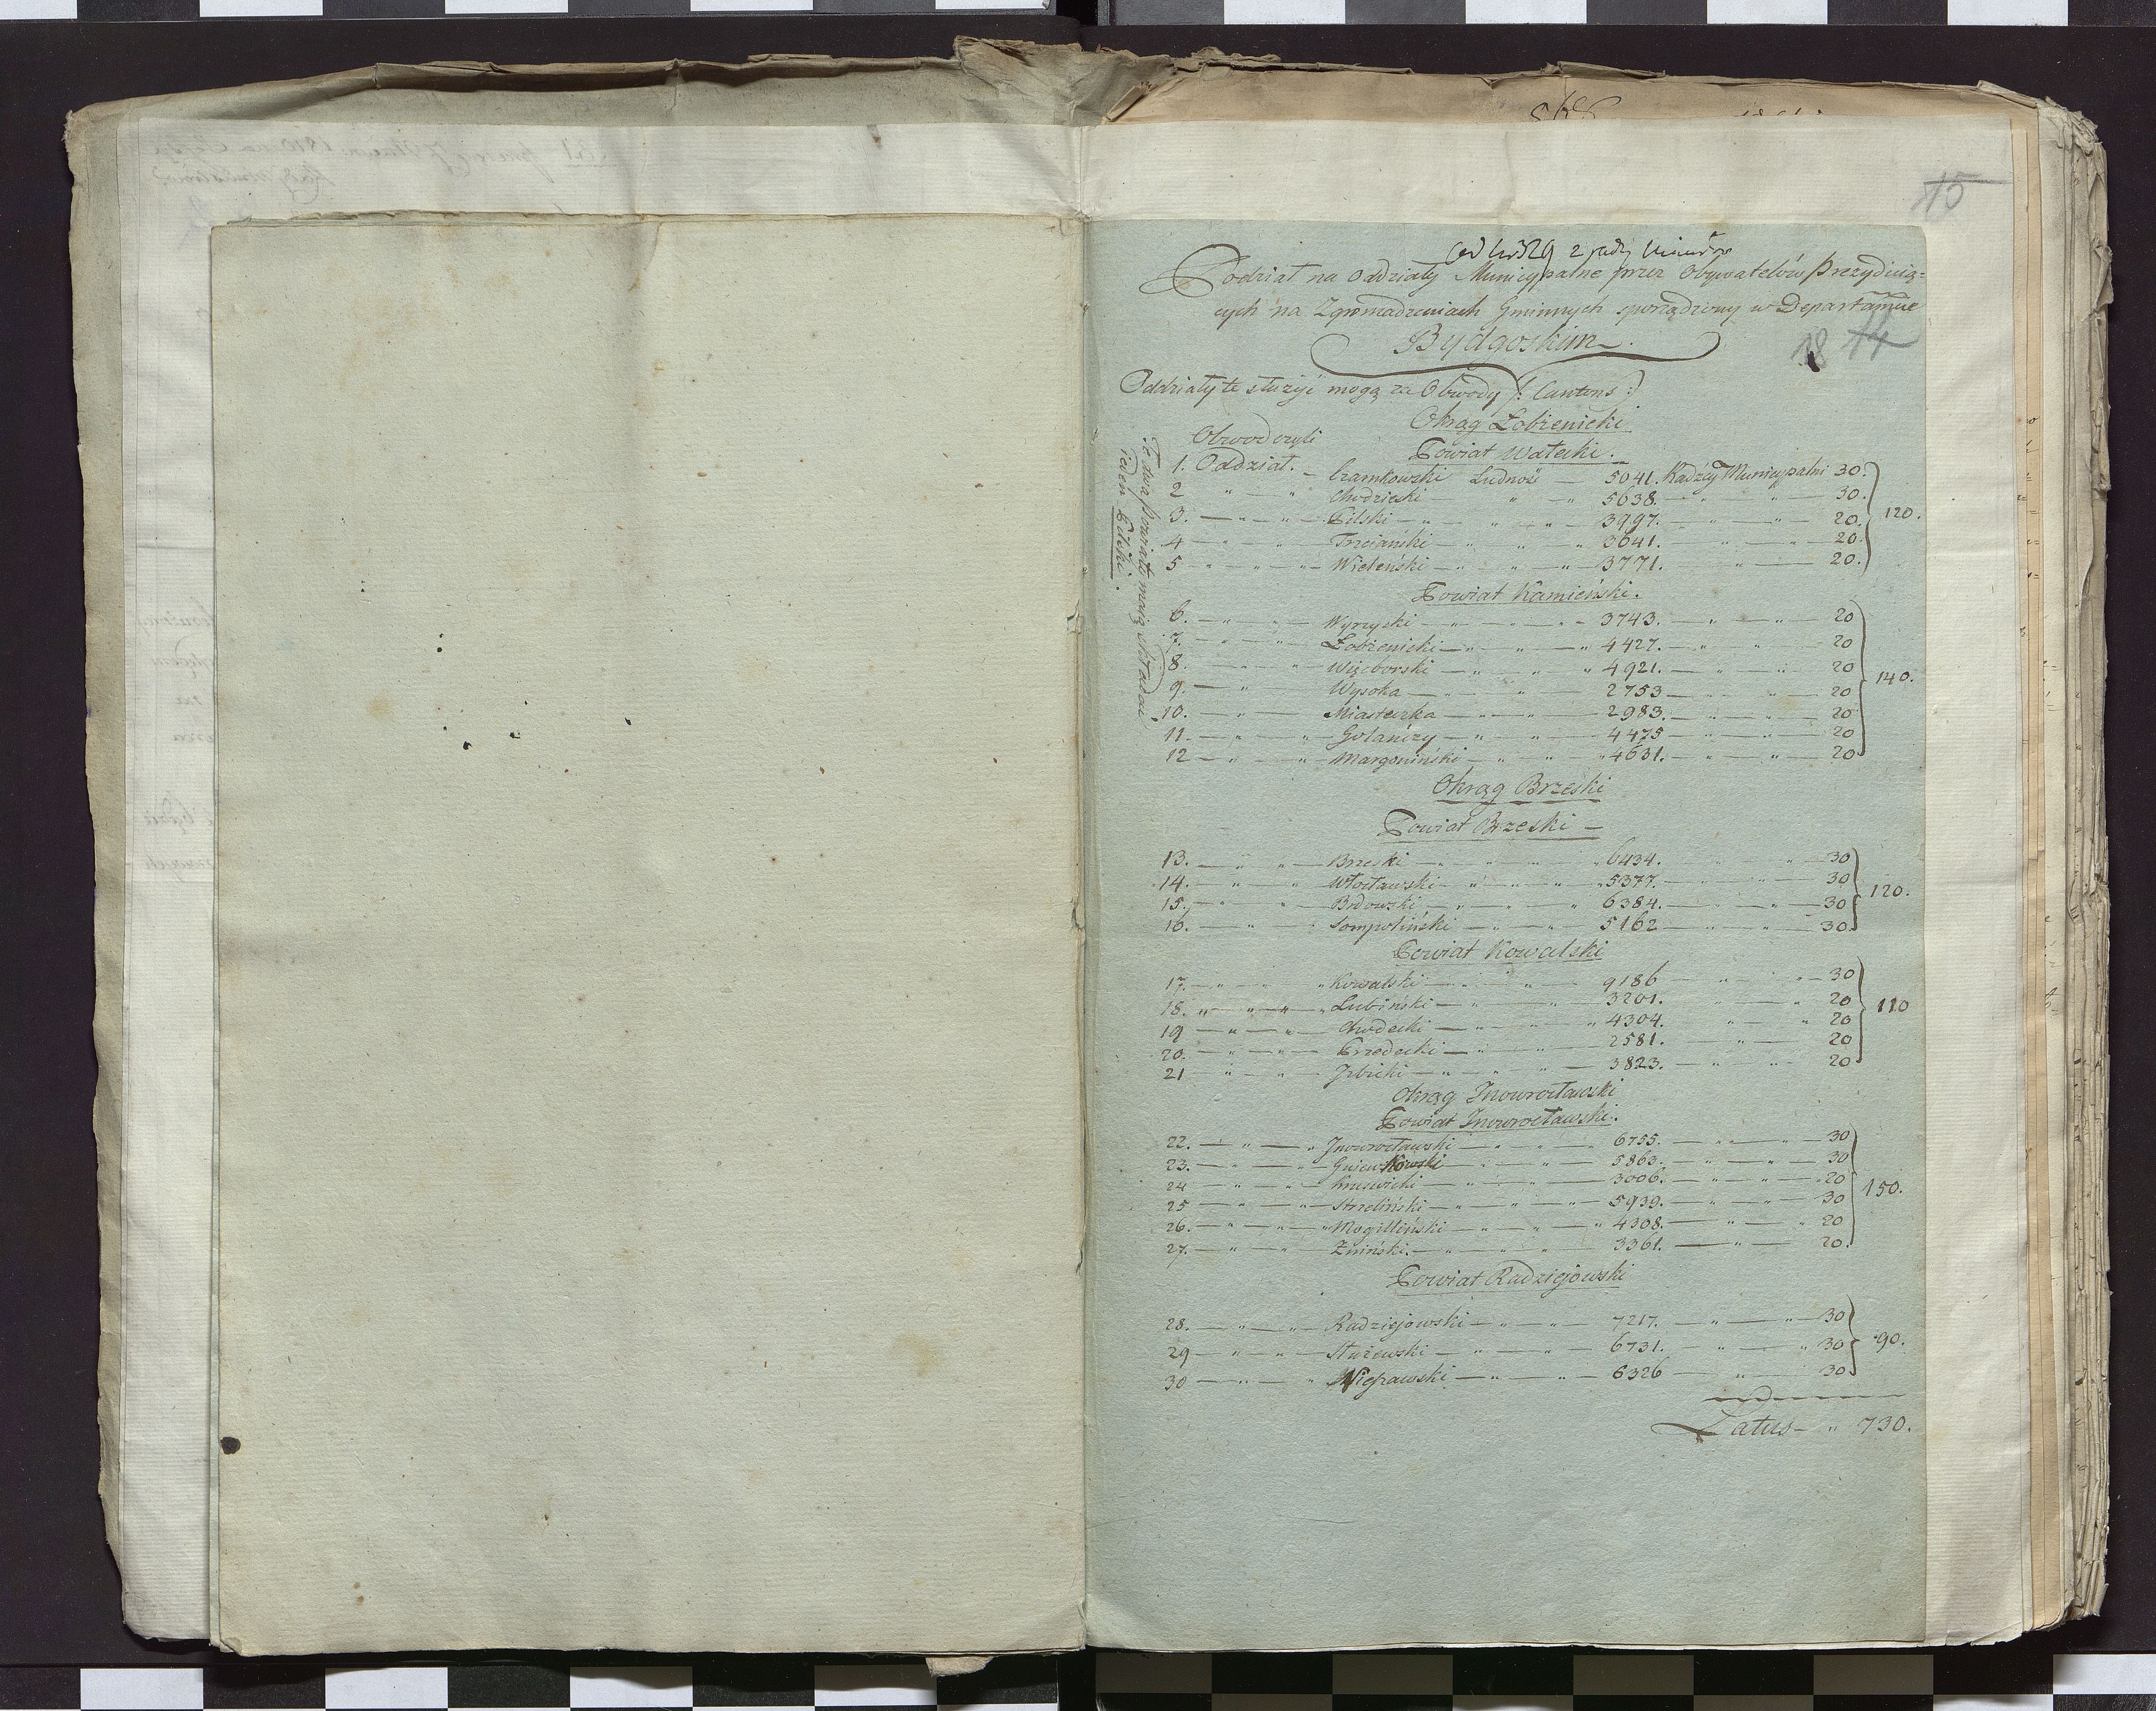 15
ad Nr 329 z rady Ministr
Podział na Oddziały Municypalne przez Obywatelów Prezyduią=
cych na Zgromadzeniach Gminnych sporządzony w Departamcie
Bydgoskim.
18 14
Oddziały te służyć mogą za Obwody (: Cantons :)
Okrąg Łobżenicki
Obwod czyli
Powiat Wałecki.
1. Oddział. — Czarnkowski Ludność — 5041. Radźcy Municypalni 30.
2 " — " Chodzieski — " " 5638. — " — " — 30.
3. — " — " — Pilski — " " — " — 3997. — " — " — 20. 120.
4 — " — " Trzcianski — " " " 3641. — " — " — 20.
5 — " — " — Wieleński — " — " — " — 3771. " — 20.
Te dwa Powiaty maią składać
ieden Pilski.
Powiat Kamieński.
6. — " — " — Wyrzyski — " — " — " — 3743. — " — " — 20
7. — " — " Łobżenicki — " " — " 4427. — " — " — 20
8. — " — " Więcborski — " — " " 4921. — " — " — 20
9. — " Wysoka — " — " — 2753 — " — " — 20 140.
10. — " — Miasteczka — " — " — 2983. — " — " — 20
11. — " — " Gołańczy — " — " — 4475 — " — " — 20
12 — " — " — Margoniński — " — " — " 4631. — " — " — 20
Okrąg Brzeski
Powiat Brzeski —
13. — " " — Brzeski — " " " — " 6434. — " — " — 30
14. — " — " Włocławski — " " — " — " 5377. — " — " — 30 120.
15. — " " — Brdowski — " — " — " 6384. — " — " — 30
16. — " — " Sompoliński — " — " — 5162 — " — " — 30.
Powiat Kowalski
17. — " — " " Kowalski — " — " — 9186 — " — " — 30
18. " " — " — " Lubiński — " — " — 3201. " — " 20 110
19 — " — " — Chodecki — " — " — " 4304. " — " 20
20. — " — " — Przedecki — " — " — 2581. — " — 20
21 " — " — Izbicki — " — " " — 3823. — " — " — 20
Okrąg Inowrocławski
Powiat Inowrocławski.
22. — " — " Inowrocławski — " — " — 6755. — " — " — 30
23. — " — " — Gniewkowski — " — " — 5863. — " — " — 30
24 — " — " — Kruswicki — " — " — 3006. — " — " — 20 150.
25 — " — " — Strzeliński — " — " — " 5939. — " — " — 30
26. — " — " — " Mogilliński — " — " — " 4308. — " — " 20
27. — " — " — Zniński. — " — " — " 3361. — " — 20.
Powiat Radziejowski
28. — " — " — Radziejowski — " — " — 7217. — " — " — 30
29 — " — " — Służewski — " — " — 6731. — " — " 30 90.
30 — " — " Nieszawski — " — " — 6326 — " — 30
Latus — " 730.